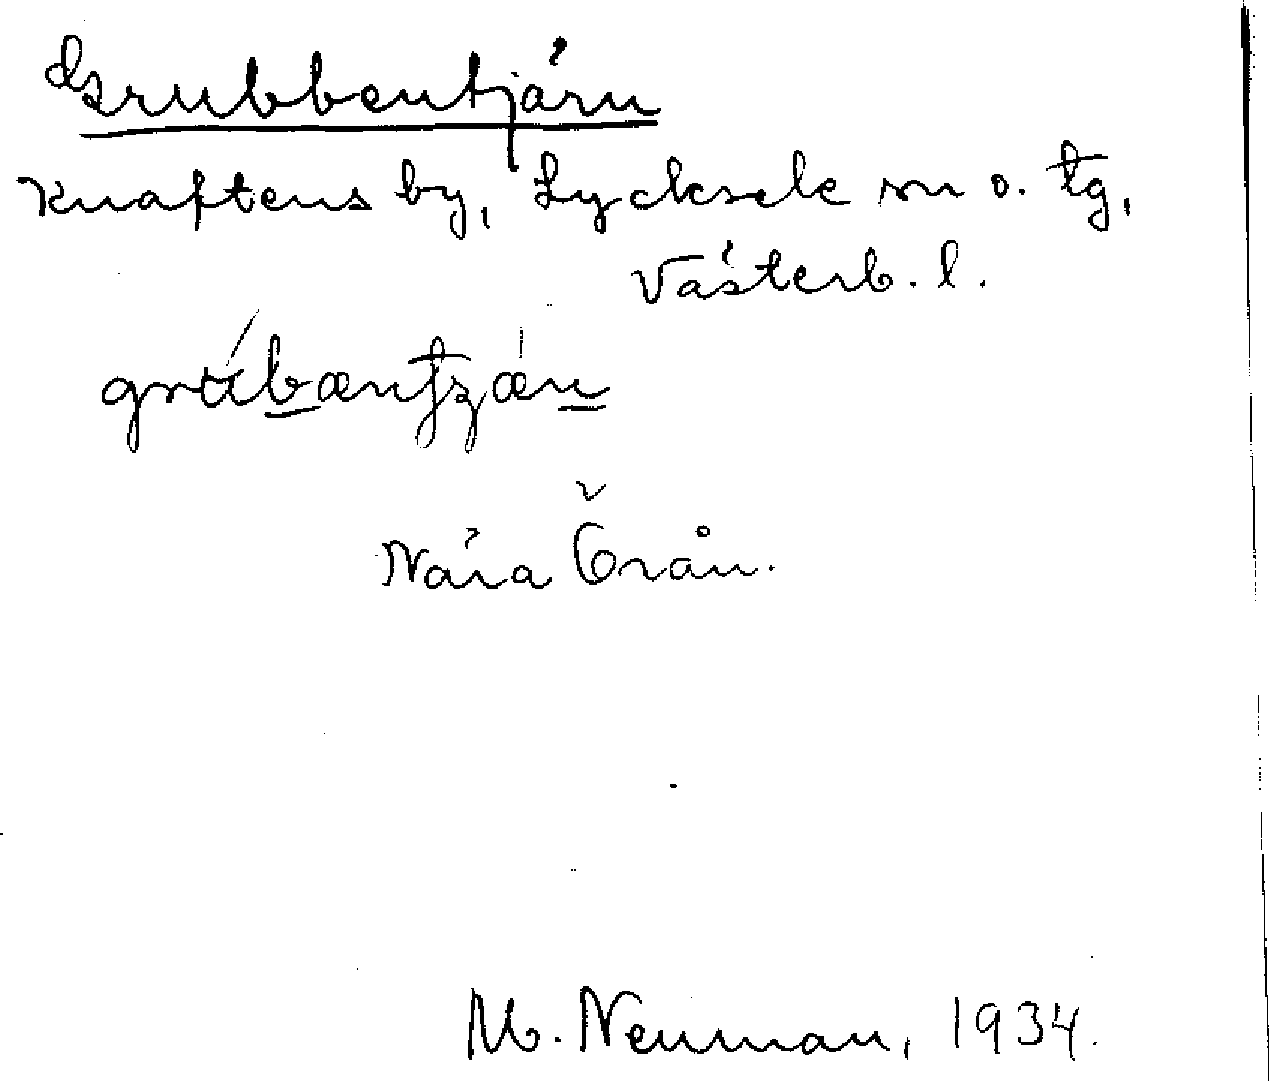 Grubbentjärn
Knaftens by, Lycksele sn o. tg,
Västerb. l.
Nära Örån.
M. Neuman, 1934.